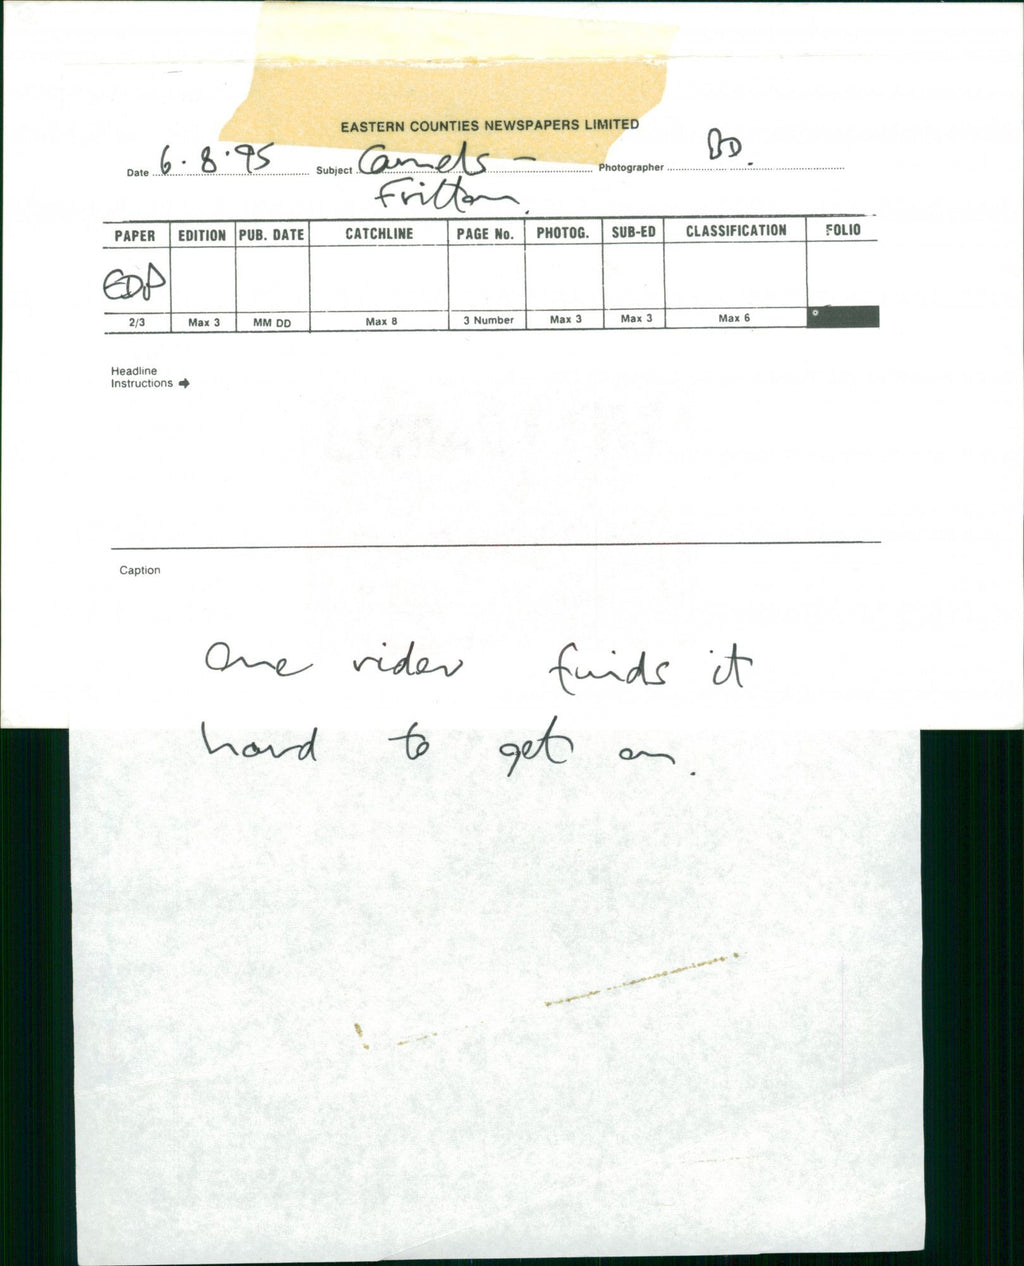 EASTERN COUNTIES NEWSPAPERS LIMITED
Date 6.8.95 Subject Camels - Photographer BD.
Fritton.
PAPER EDITION PUB. DATE CATCHLINE PAGE No. PHOTOG. SUB-ED CLASSIFICATION FOLIO
EDP
2/3 Max 3 MM DD Max 8 3 Number Max 3 Max 3 Max 6
Headline
Instructions →
Caption
One rider finds it
hard to get on.